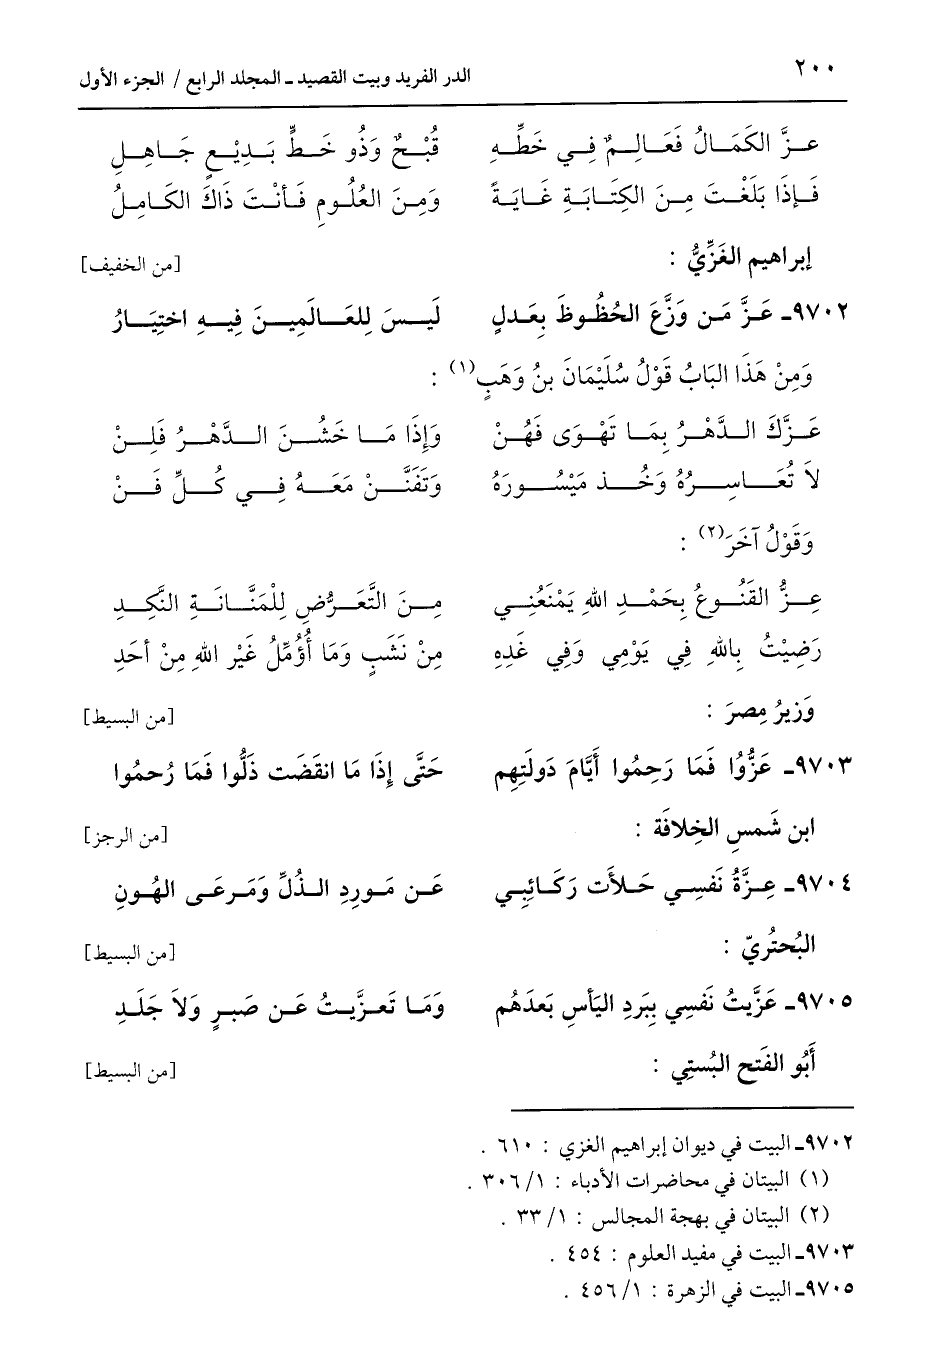 ٢٠٠ الدر الفريد وبيت القصيد ـ المجلد الرابع / الجزء الأول
عـزَّ الكَمَـالُ فَعَـالِـمٌ فِـي خَطِّـهِ قُبْـحٌ وَذُو خَـطٍّ بَـدِيْـعٍ جَـاهِـلِ
فَـإِذَا بَلَغْـتَ مِـنَ الكِتَـابَـةِ غَـايَـةً وَمِـنَ العُلُـومِ فَـأنْـتَ ذَاكَ الكَـامِـلُ
إبراهيم الغَزِّيُّ : [من الخفيف]
٩٧٠٢ـ عَـزَّ مَـن وَزَّعَ الحُظُـوظَ بِعَـدلٍ لَيـسَ لِلعَـالَميـنَ فِيـهِ اختِيَـارُ
وَمِنْ هَذَا البَابُ قَوْلُ سُلَيْمَانَ بنُ وَهَبٍ(١) :
عَـزَّكَ الـدَّهْـرُ بِمَـا تَهْـوَى فَهُـنْ وَإِذَا مَـا خَشُـنَ الـدَّهْـرُ فَلِـنْ
لاَ تُعَـاسِـرْهُ وَخُـذ مَيْسُـورَهُ وَتَفَنَّـنْ مَعَـهُ فِـي كُـلِّ فَـنْ
وَقَوْلُ آخَرَ(٢) :
عِـزُّ القَنُـوعُ بِحَمْـدِ اللهِ يَمْنَعُنِـي مِـنَ التَّعَـرُّضِ لِلْمَنَّـانَـةِ النَّكِـدِ
رَضِيْتُ بِاللهِ فِي يَوْمِي وَفِي غَدِهِ مِنْ نَشَبٍ وَمَا أُؤَمِّلُ غَيْرَ اللهِ مِنْ أحَدِ
وَزيرُ مِصرَ : [من البسيط]
٩٧٠٣ـ عَزُّوا فَمَا رَحِمُوا أيَّامَ دَولَتِهِم حَتَّى إِذَا مَا انقَضَت ذَلُّوا فَمَا رُحمُوا
ابن شَمسِ الخِلافَة : [من الرجز]
٩٧٠٤ـ عِـزَّةُ نَفسِـي حَـلأَت رَكَـائِبِـي عَـن مَـورِدِ الـذُلِّ وَمَـرعَـى الهُـونِ
البُحتُريّ : [من البسيط]
٩٧٠٥ـ عَزَّيتُ نَفسِي بِبَردِ اليَأسِ بَعدَهُم وَمَا تَعـزَّيـتُ عَـن صَبـرٍ وَلاَ جَلَـدِ
أَبُو الفَتح البُستِي : [من البسيط]
٩٧٠٢ـ البيت في ديوان إبراهيم الغزي : ٦١٠ .
(١) البيتان في محاضرات الأدباء : ١/ ٣٠٦ .
(٢) البيتان في بهجة المجالس : ١/ ٣٣ .
٩٧٠٣ـ البيت في مفيد العلوم : ٤٥٤ .
٩٧٠٥ـ البيت في الزهرة : ١/ ٤٥٦ .